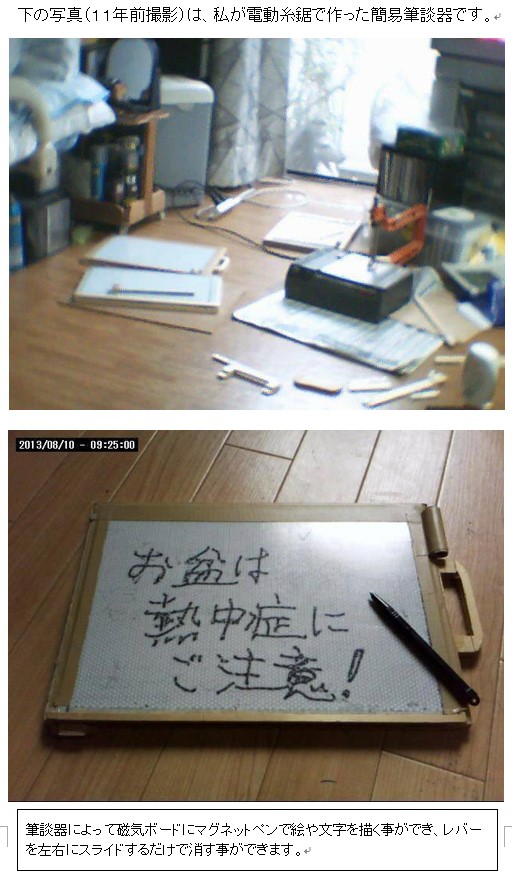 下の写真（１１年前撮影）は、私が電動糸鋸で作った簡易筆談器です。
2013/08/10 - 09:25:00
お盆は
熱中症に
ご注意！
筆談器によって磁気ボードにマグネットペンで絵や文字を描く事ができ、レバー
を左右にスライドするだけで消す事ができます。